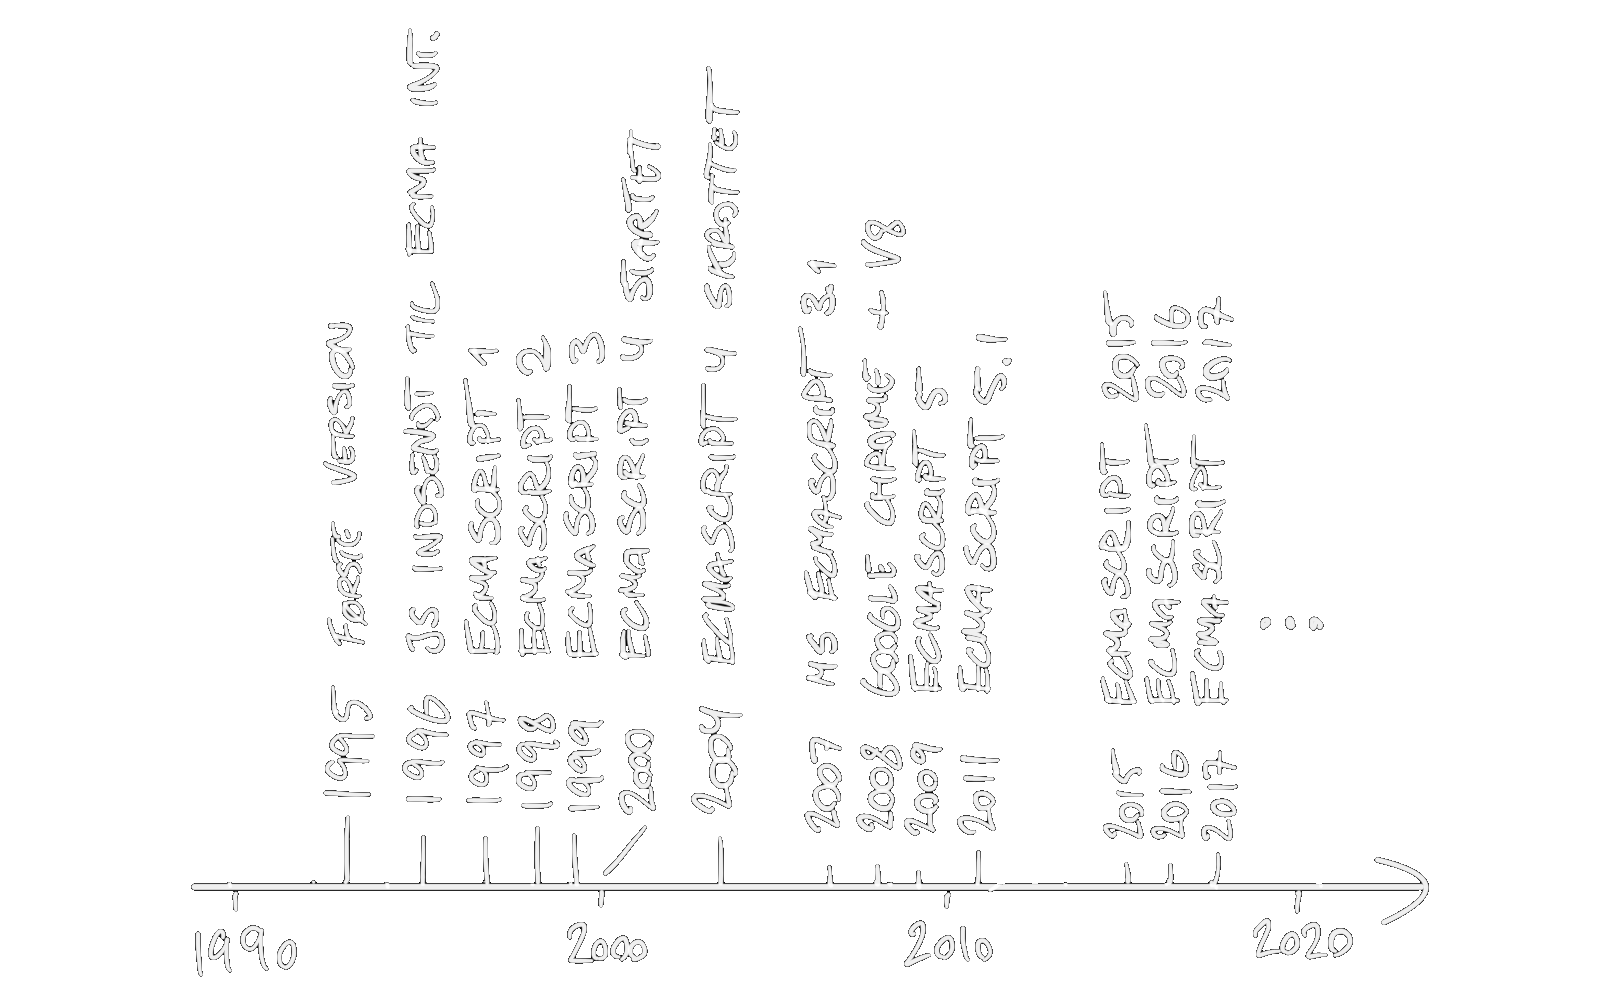 1995 FØRSTE VERSION
1996 JS INDSENDT TIL ECMA INT.
1997 ECMASCRIPT 1
1998 ECMASCRIPT 2
1999 ECMASCRIPT 3
2000 ECMASCRIPT 4 STARTET
2004 ECMASCRIPT 4 SKROTTET
2007 MS ECMASCRIPT 3.1
2008 GOOGLE CHROME + V8
2009 ECMASCRIPT 5
2011 ECMASCRIPT 5.1
2015 ECMASCRIPT 2015
2016 ECMASCRIPT 2016
2017 ECMASCRIPT 2017
...
1990
2000
2010
2020